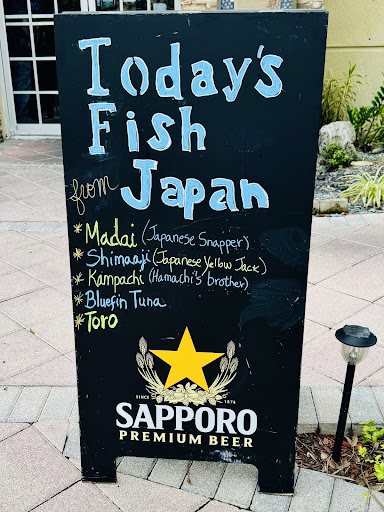 Today's
Fish
from Japan
* Madai (Japanese Snapper)
* Shimaaji (Japanese Yellow Jack)
* Kampachi (Hamachi's brother)
* Bluefin Tuna
* Toro
SINCE 1876
SAPPORO
PREMIUM BEER